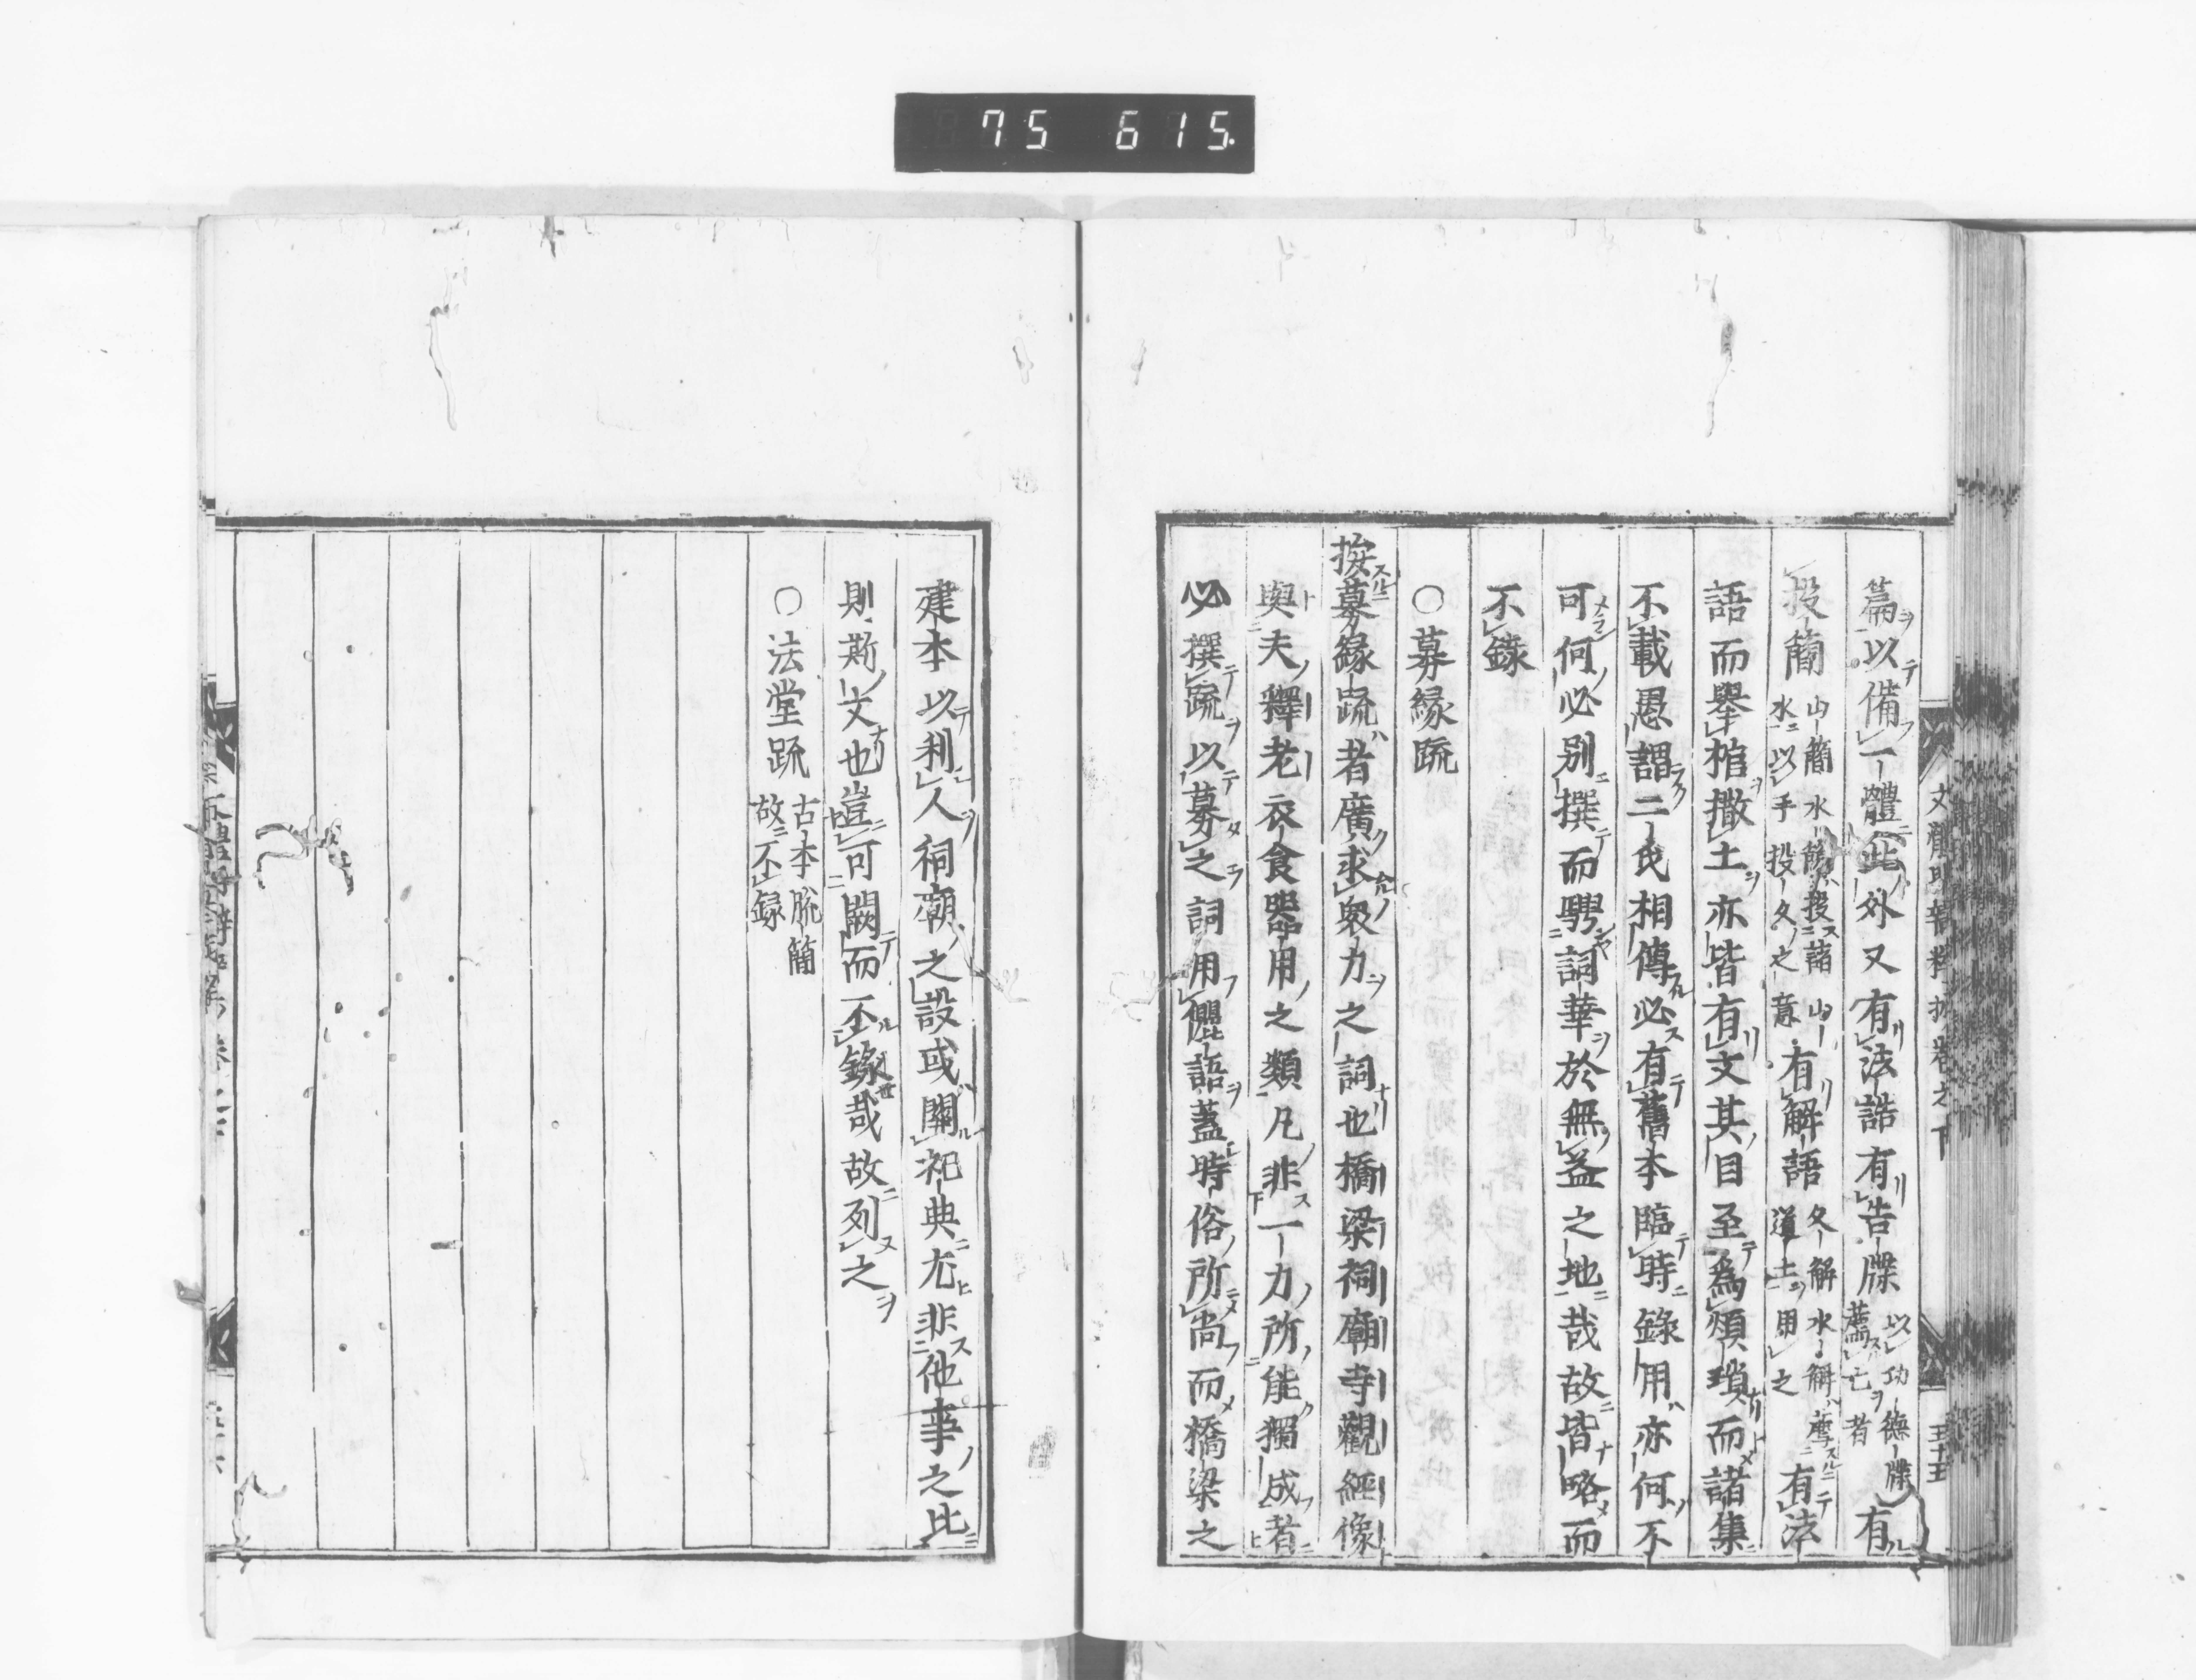 75 615.
篇以備一體此外又有法誥有告牒以功德牒薦亡者有
投簡山簡水簡投諸山水以手投久之意有解語冬解水解道士用之有法
語而舉棺撒土亦皆有文其目至為煩瑣而諸集
不載愚謂二氏相傳必有舊本臨時錄用亦何不
可何必別撰而騁詞華於無益之地哉故皆略而
不錄
○募緣疏
按募緣疏者廣求衆力之詞也橋梁祠廟寺觀經像
與夫釋老衣食器用之類凡非一力所能獨成者
必撰疏以募之詞用儷語蓋時俗所尚而橋梁之
建本以利人祠廟之設或關祀典尤非他事之比
則斯文也豈可闕而不錄哉故列之
○法堂疏古本脫簡故不録